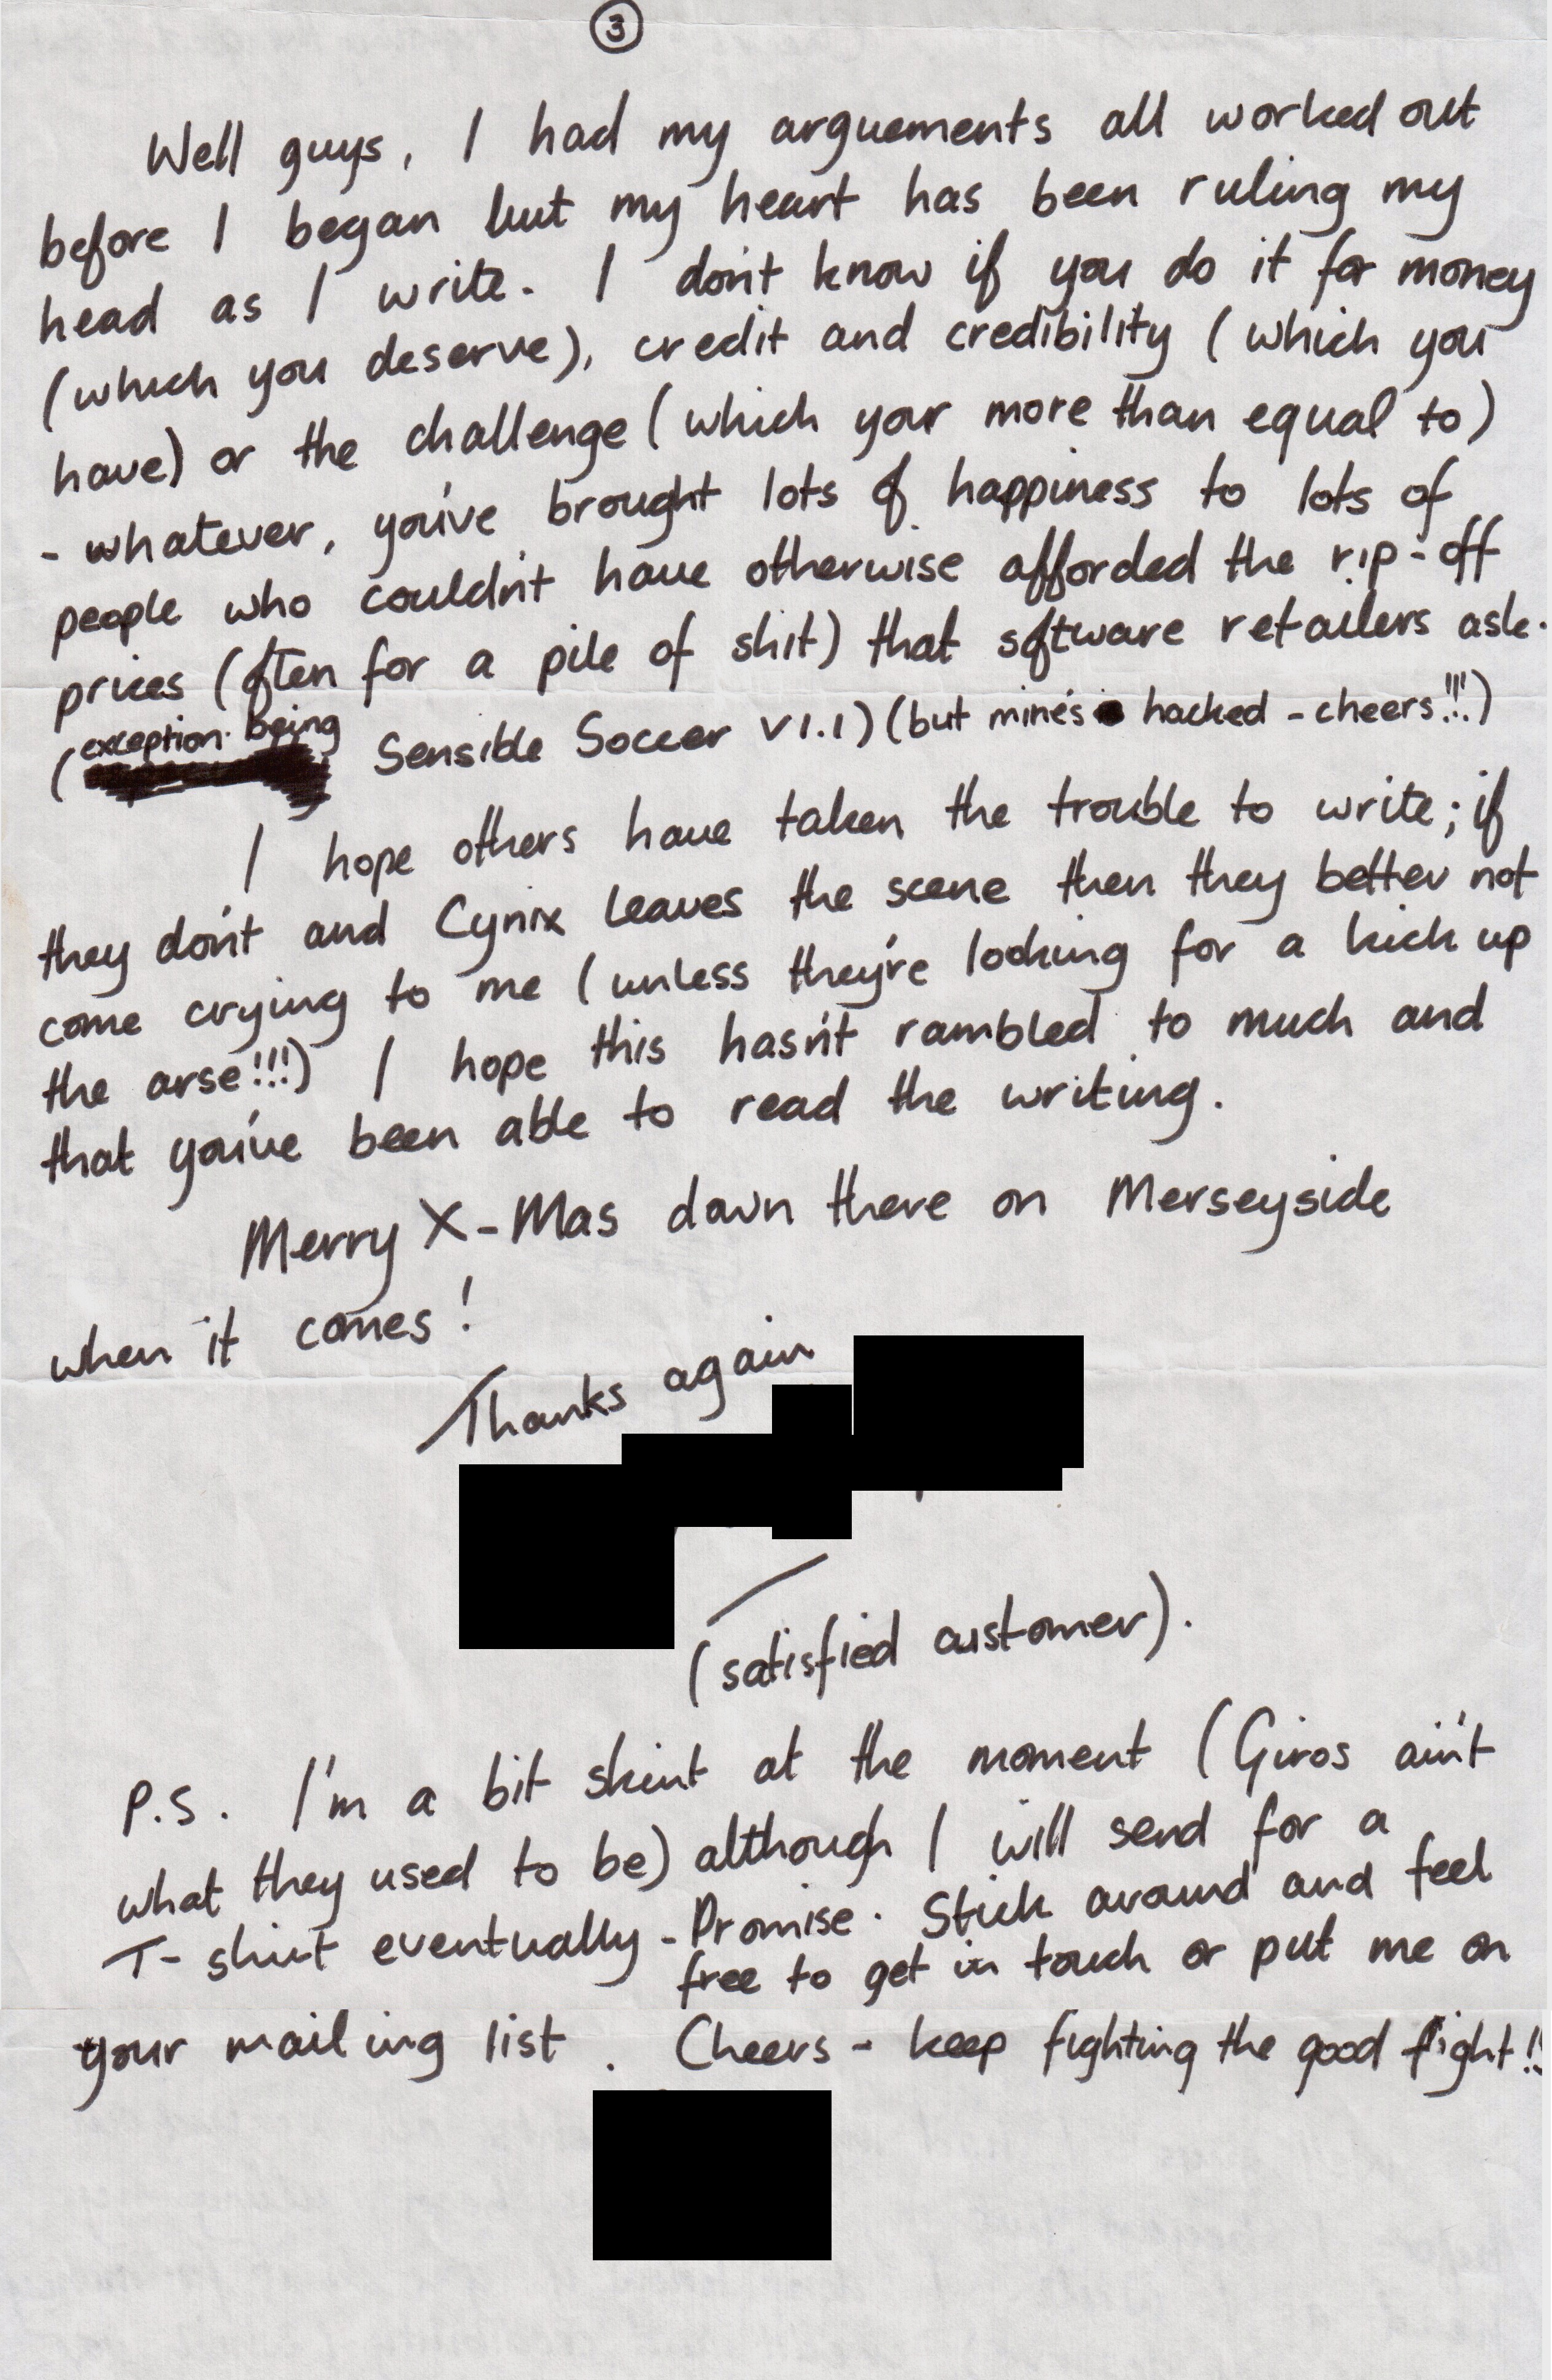 3
Well guys, I had my arguements all worked out
before I began but my heart has been ruling my
head as I write. I don't know if you do it for money
(which you deserve), credit and credibility (which you
have) or the challenge (which your more than equal to)
- whatever, you've brought lots of happiness to lots of
people who couldn't have otherwise afforded the rip-off
prices (often for a pile of shit) that software retailers ask.
(exception being Sensible Soccer V1.1) (but mine's hacked - cheers!!!)
I hope others have taken the trouble to write; if
they don't and Cynix leaves the scene then they better not
come crying to me (unless they're looking for a kick up
the arse!!!) I hope this hasn't rambled to much and
that you've been able to read the writing.
Merry X-Mas down there on Merseyside
when it comes!
Thanks again
(satisfied customer).
P.S. I'm a bit skint at the moment (Giros ain't
what they used to be) although I will send for a
T-shirt eventually - Promise. Stick around and feel
free to get in touch or put me on
your mailing list. Cheers - keep fighting the good fight!!